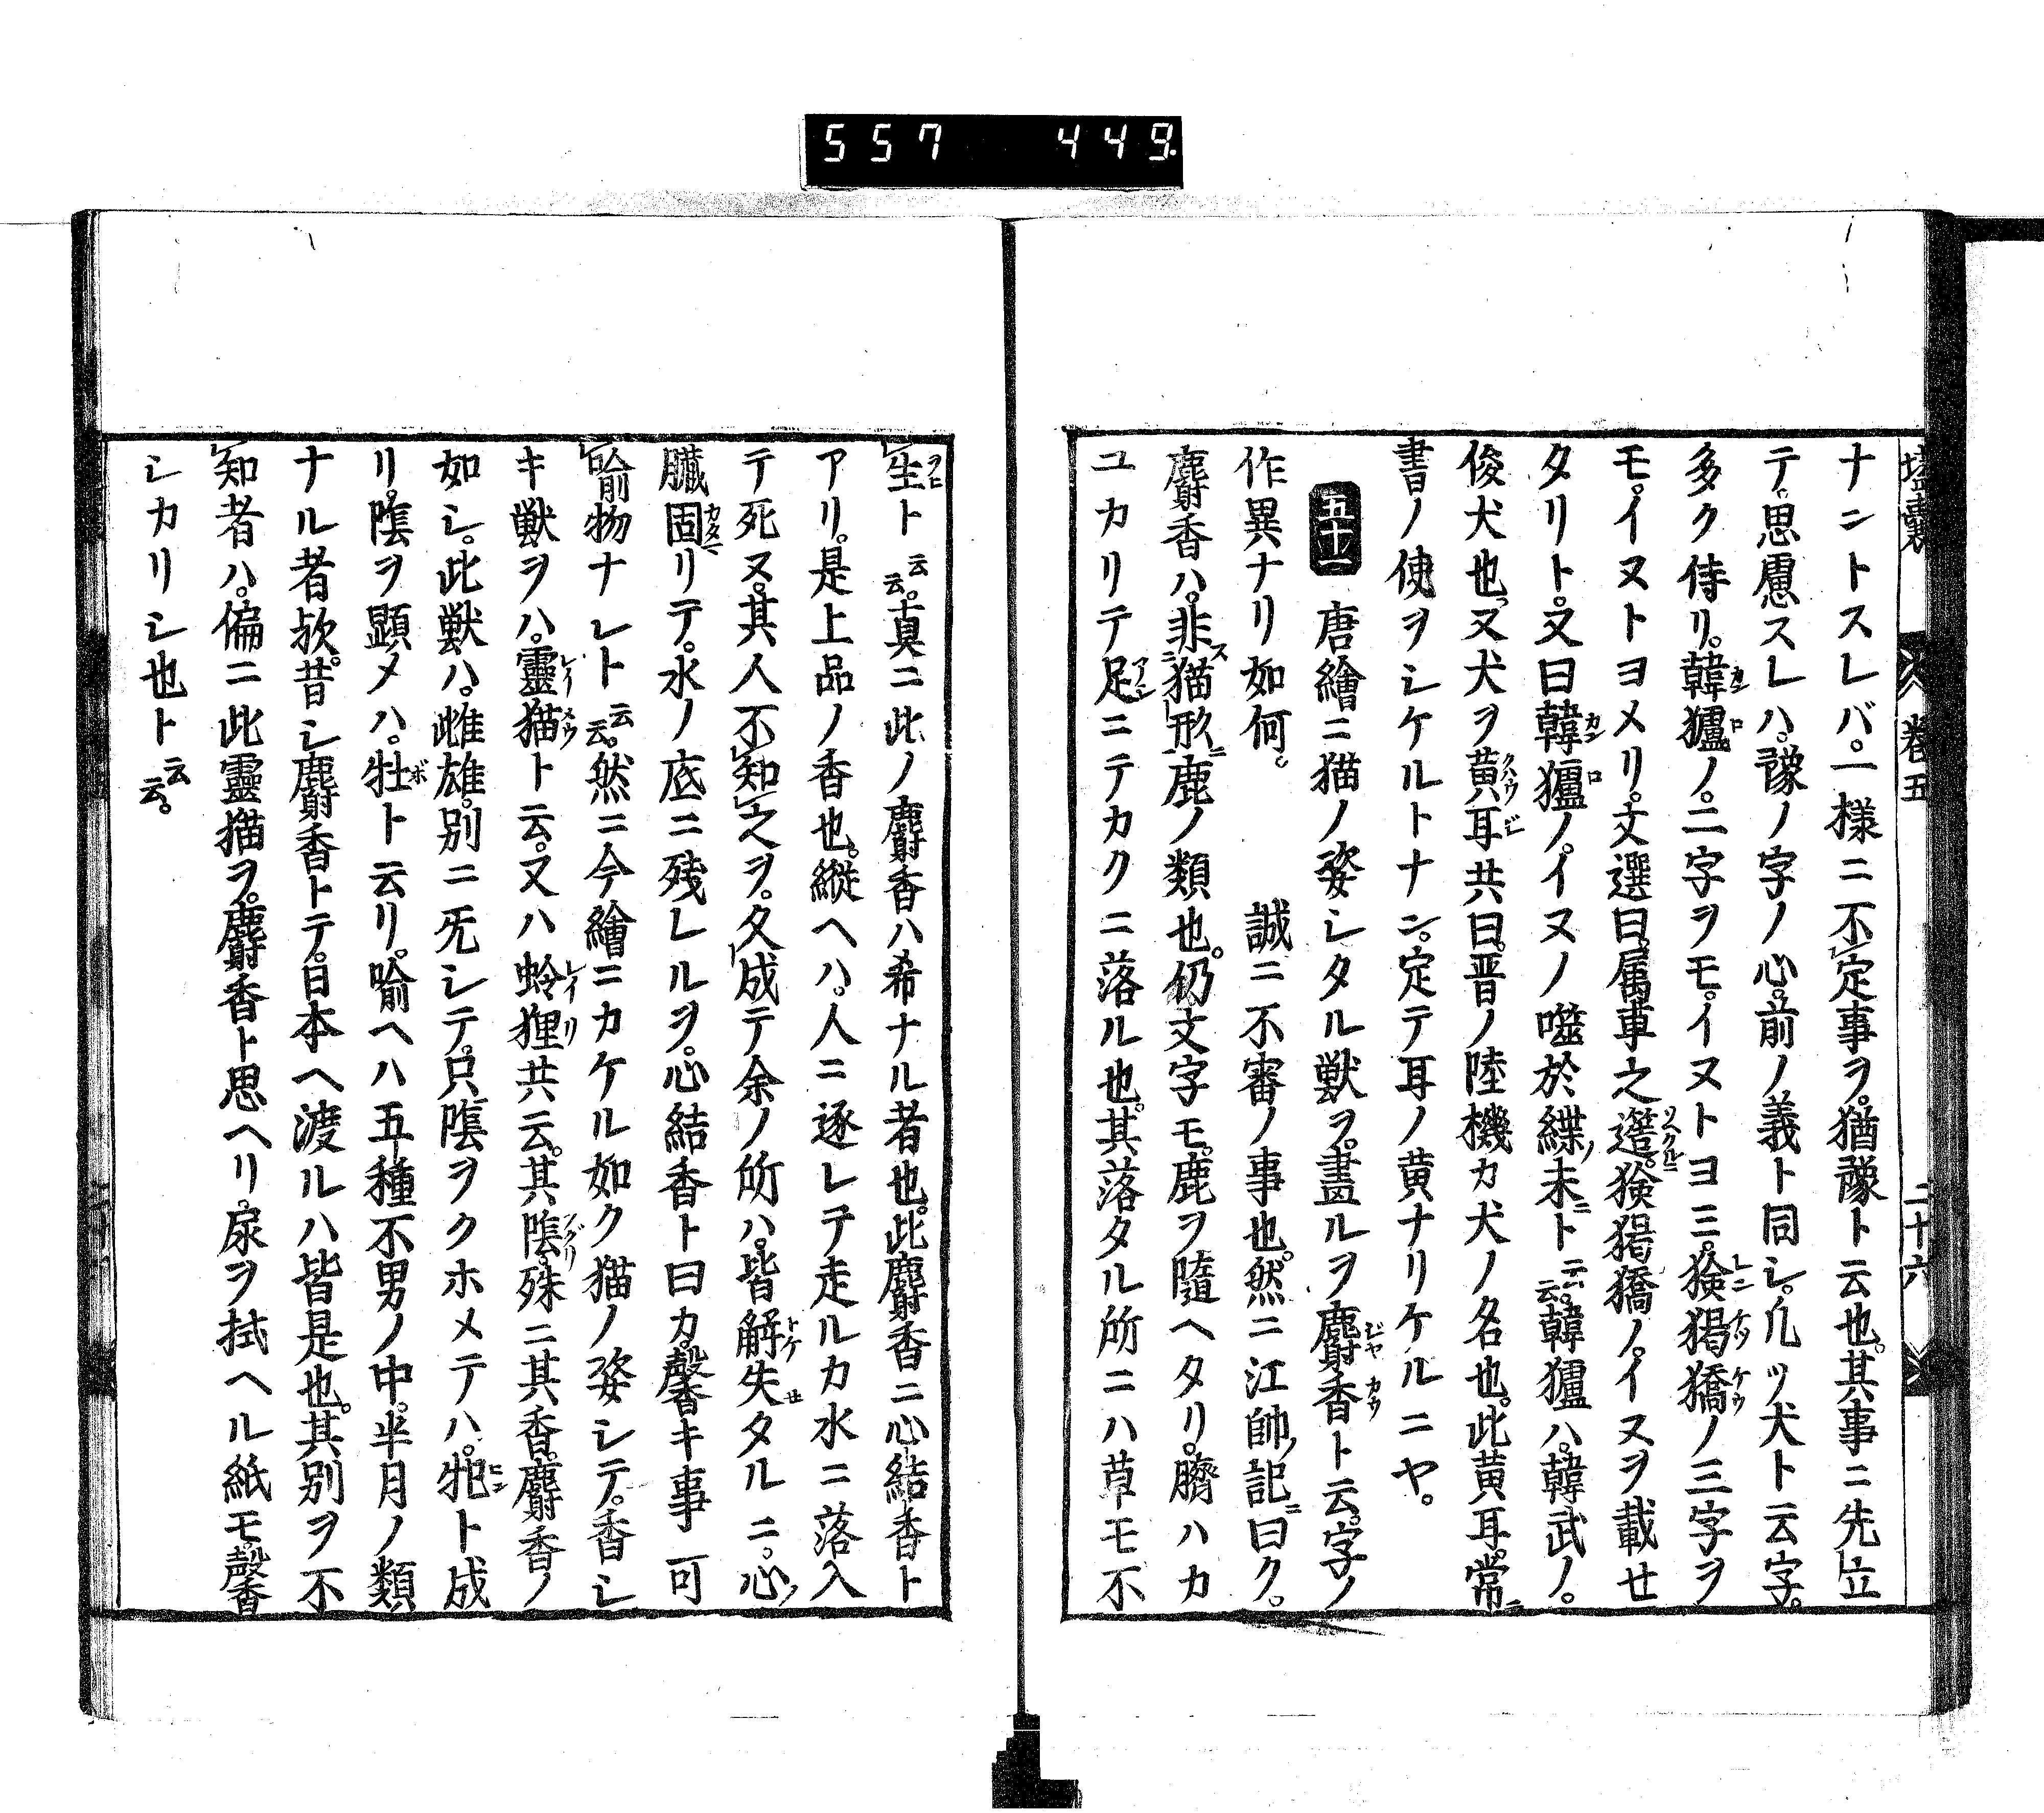 557 449
壒嚢 巻五 二十六
ナントスレバ。一様ニ不定事ヲ。猶豫ト云也。其事ニ先立
テ。思慮スレハ。豫ノ字ノ心。前ノ義ト同シ。凡ッ犬ト云字。
多ク侍リ。韓獹ノ。二字ヲモ。イヌトヨミ。獫猲獢ノ三字ヲ
モ。イヌトヨメリ。文選曰。属車之簉。獫猲獢ノ。イヌヲ載せ
タリト。又曰韓獹ノ。イヌノ噬於緤末ト云云。韓獹ハ。韓武ノ。
俊犬也。又犬ヲ黄耳共曰。晋ノ陸機カ犬ノ名也。此黄耳。常ニ
書ノ使ヲシケルトナン。定テ耳ノ黄ナリケルニヤ。
五十一 唐繪ニ猫ノ姿シタル獣ヲ。畫ルヲ麝香ト云。字ノ
作異ナリ如何。 誠ニ不審ノ事也。然ニ江帥ノ記ニ曰ク。
麝香ハ。非猫形ニ鹿ノ類也。仍文字モ。鹿ヲ隨ヘタリ。臍ハカ
ユカリテ足ニテカクニ落ル也。其落タル所ニハ草モ不
生ト云云。真ニ此ノ麝香ハ希ナル者也。此麝香ニ心結香ト
アリ。是上品ノ香也。縱ヘハ。人ニ逐レテ走ルカ水ニ落入
テ死ヌ。其人不知之ヲ。久成テ余ノ所ハ。皆解失タルニ。心ノ
臓固リテ。水ノ底ニ残レルヲ。心結香ト曰カ。馨キ事可
喻物ナレト云云。然ニ今繪ニカケル如ク猫ノ姿シテ。香シ
キ獣ヲハ。靈猫ト云。又ハ蛉狸共云。其陰。殊ニ其香。麝香ノ
如シ。此獣ハ。雌雄。別ニ旡シテ。只陰ヲクホメテハ。牝ト成
リ。陰ヲ顕メハ。牡ト云リ。喻ヘハ五種不男ノ中。半月ノ類
ナル者欤。昔シ麝香トテ。日本ヘ渡ルハ皆是也。其別ヲ不
知者ハ。偏ニ此靈猫ヲ。麝香ト思ヘリ。尿ヲ拭ヘル紙モ。馨
シカリシ也ト云云。